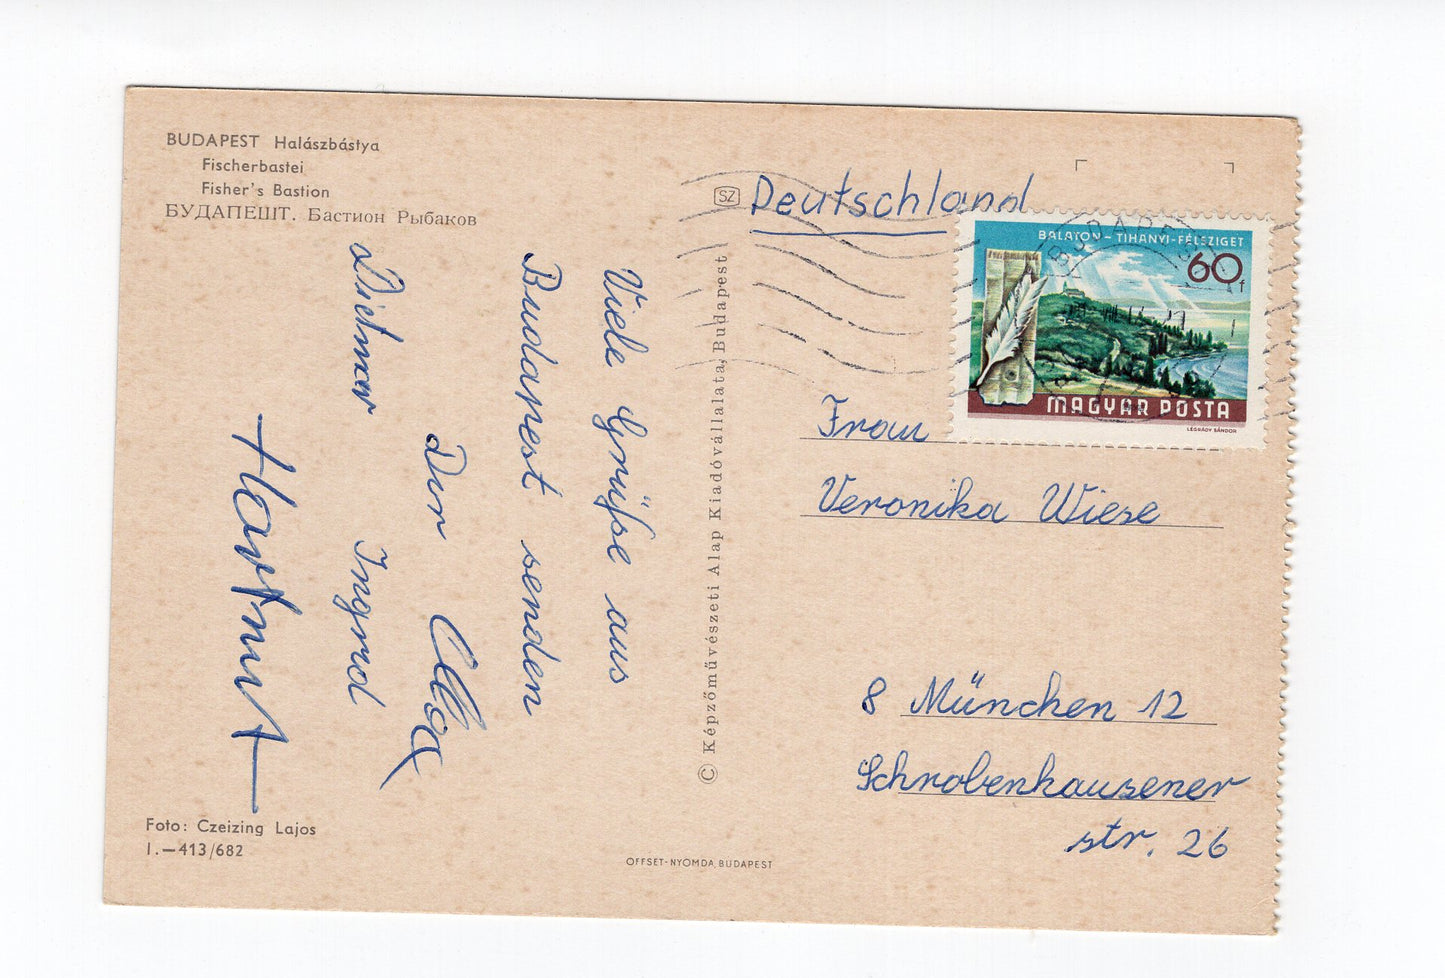 BUDAPEST Halászbástya
Fischerbastei
Fisher's Bastion
БУДАПЕШТ. Бастион Рыбаков
Viele Grüße aus
Budapest senden
Dietmar Ingrid
Hartmut
Foto: Czeizing Lajos
I.—413/682
© Képzőművészeti Alap Kiadóvállalata, Budapest
OFFSET-NYOMDA, BUDAPEST
SZ
Deutschland
BALATON – TIHANYI-FÉLSZIGET
60 f
MAGYAR POSTA
LÉGRÁDY SÁNDOR
BUDAPEST
Frau
Veronika Wiese
8 München 12
Schrobenhausener
str. 26